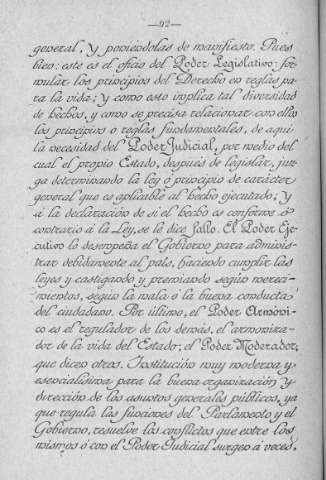 —92—
general, y poniéndolas de manifiesto. Pues
bien: este es el oficio del Poder Legislativo: for
mular los principios del Derecho en reglas pa-
ra la vida; y como esto implica tal diversidad
de hechos, y como se precisa relacionar con ellos
los principios o reglas fundamentales, de aquí
la necesidad del Poder Judicial, por medio del
cual el propio Estado, después de legislar, juz-
ga determinando la ley ó principio de carácter
general que es aplicable al hecho ejecutado; y
á la declaración de si el hecho es conforme ó
contrario á la Ley, se le dice fallo. El Poder Eje-
cutivo lo desempeña el Gobierno para adminis-
trar debidamente al país, haciendo cumplir las
leyes y castigando y premiando según mereci-
mientos, segun la mala ó la buena conducta
del ciudadano. Por último, el Poder Armóni-
co es el regulador de los demás, el armoniza-
dor de la vida del Estado; el Poder Moderador,
que dicen otros. Institución muy moderna y
esencialísima para la buena organización y
dirección de los asuntos generales públicos, ya
que regula las funciones del Parlamento y el
Gobierno, resuelve los conflictos que entre los
mismos ó con el Poder Judicial surgen á veces,